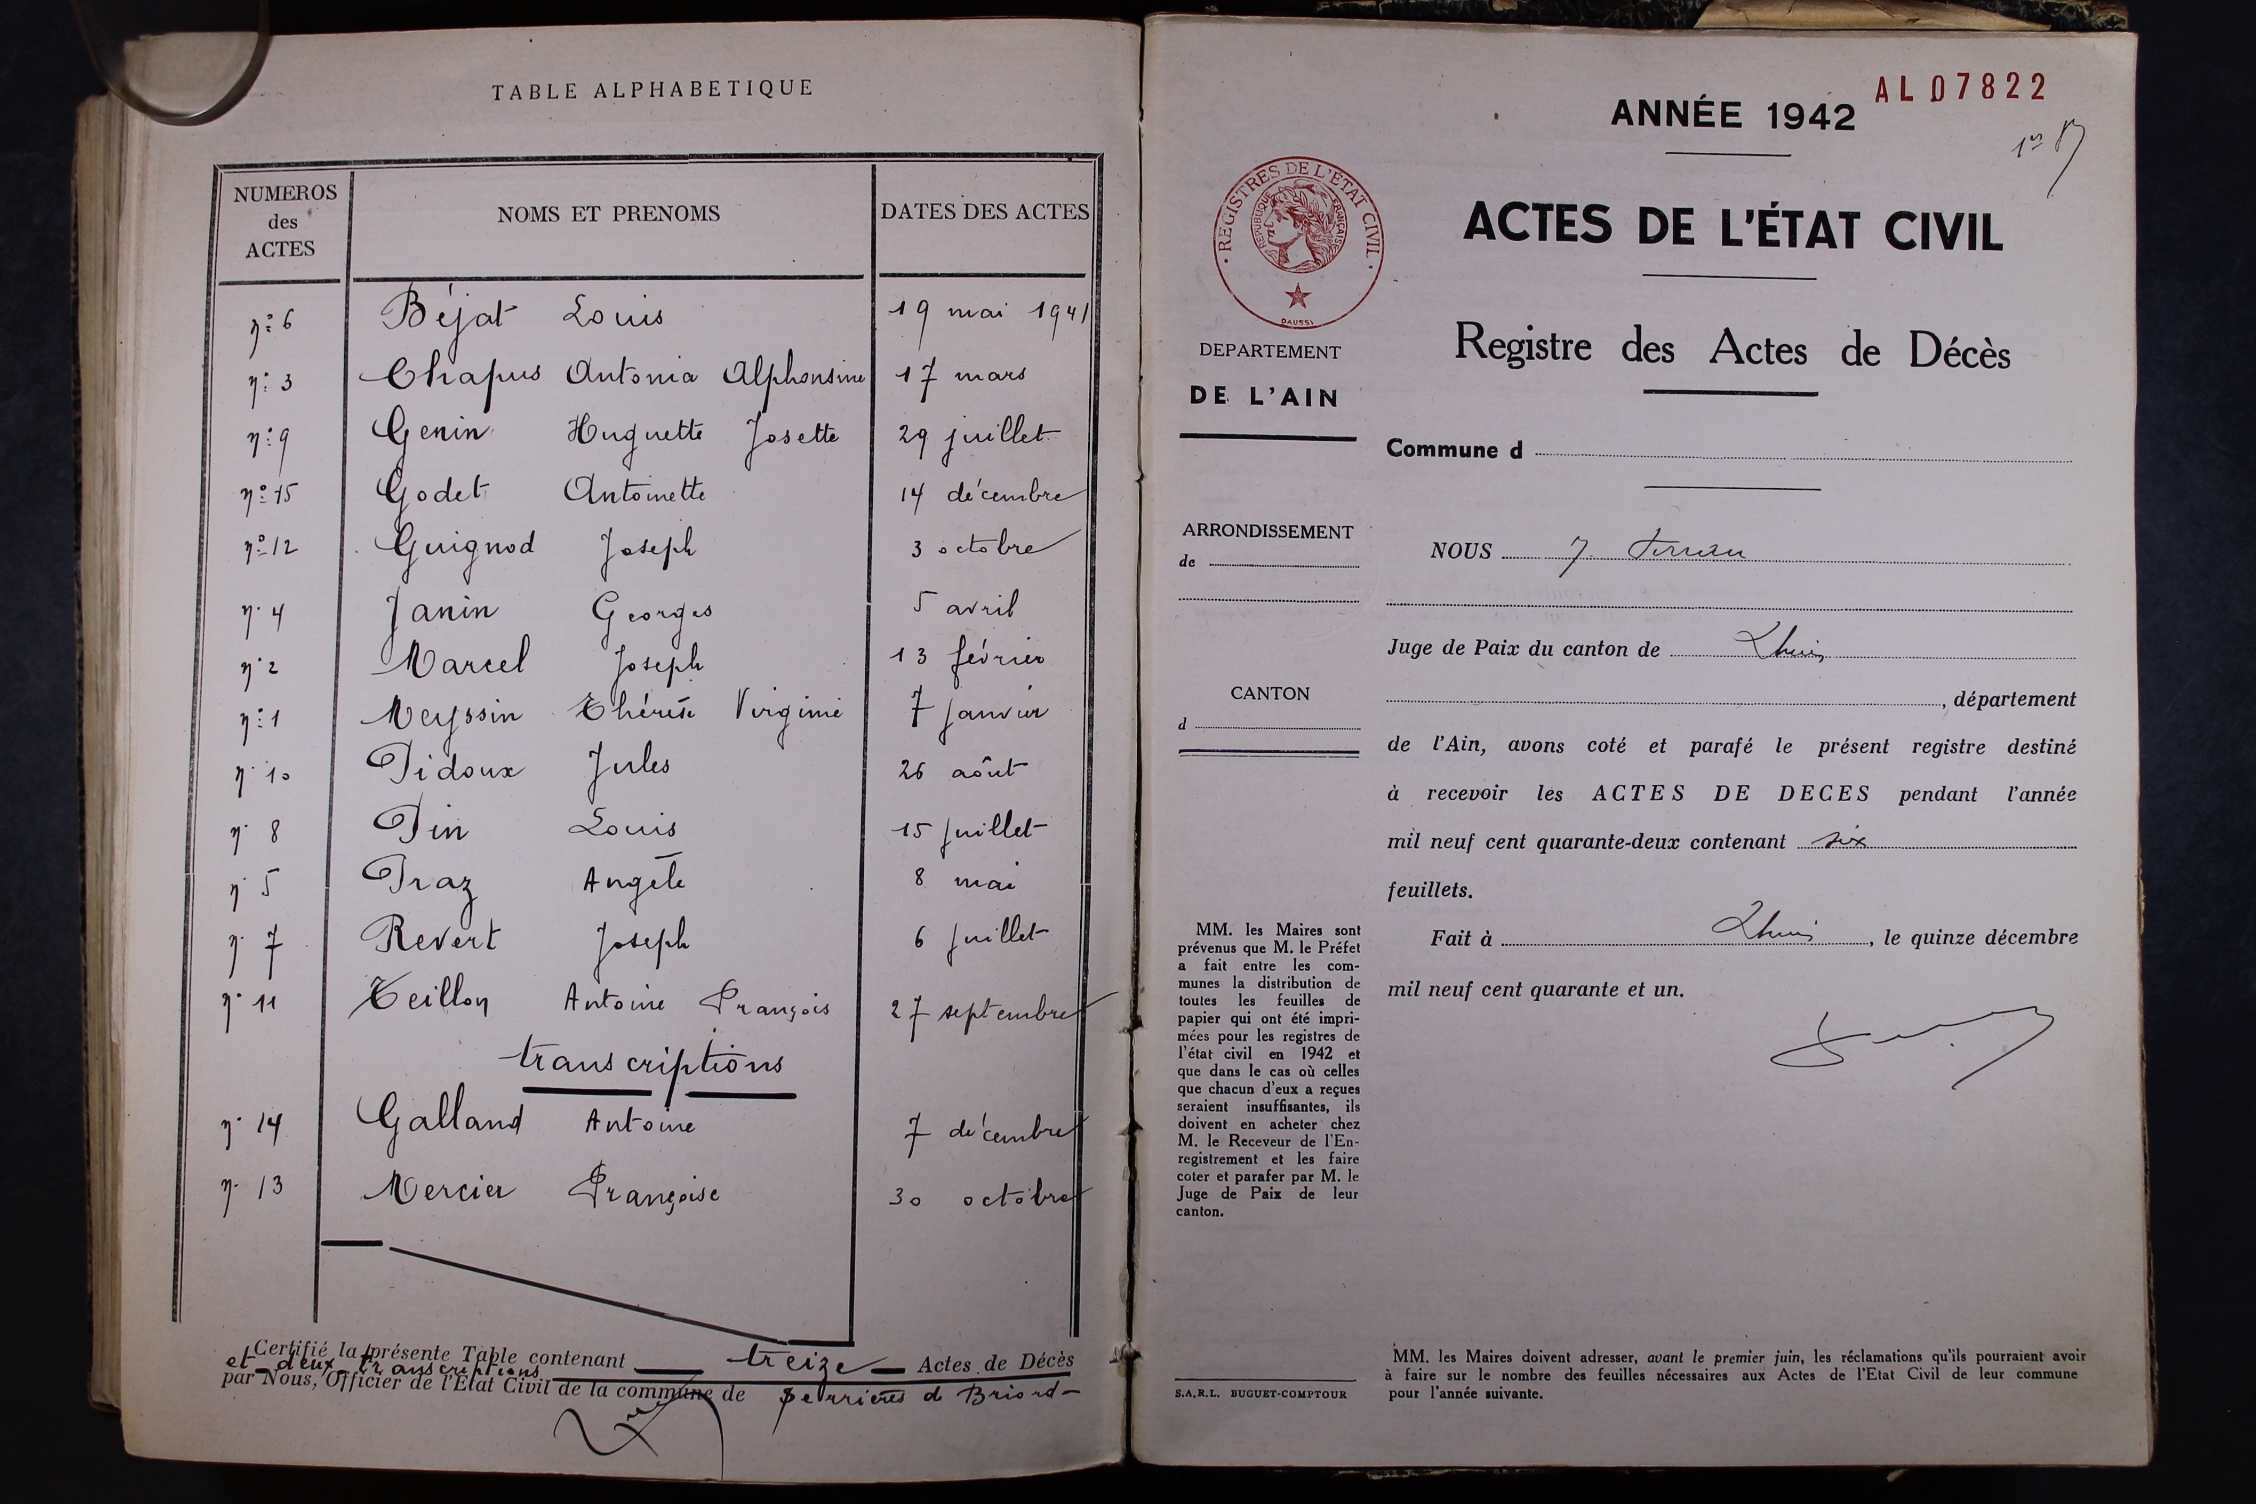 TABLE ALPHABETIQUE
NUMEROS des ACTES NOMS ET PRENOMS DATES DES ACTES
nº 6 Béjat Louis 19 mai 1941
nº 3 Chapus Antonia Alphonsine 17 mars
nº 9 Genin Huguette Josette 29 juillet
nº 15 Godet Antoinette 14 décembre
nº 12 Guignod Joseph 3 octobre
nº 4 Janin Georges 5 avril
nº 2 Marcel Joseph 13 février
nº 1 Meyssin Thérèse Virginie 7 janvier
nº 10 Pidoux Jules 26 aôut
nº 8 Pin Louis 15 juillet
nº 5 Praz Angèle 8 mai
nº 7 Revert Joseph 6 juillet
nº 11 Teillon Antoine François 27 septembre
transcriptions
nº 14 Galland Antoine 7 décembre
nº 13 Mercier Françoise 30 octobre
Certifié la présente Table contenant treize Actes de Décès
et deux transcriptions
par Nous, Officier de l'Etat Civil de la commune de Serrières de Briord
AL07822
ANNÉE 1942
REGISTRES DE L'ÉTAT CIVIL
RÉPUBLIQUE FRANÇAISE
DAUSSI
ACTES DE L'ÉTAT CIVIL
Registre des Actes de Décès
DEPARTEMENT
DE L'AIN
Commune d
ARRONDISSEMENT
de
CANTON
d
NOUS
Juge de Paix du canton de Lhuis
, département
de l'Ain, avons coté et parafé le présent registre destiné
à recevoir les ACTES DE DECES pendant l'année
mil neuf cent quarante-deux contenant six
feuillets.
Fait à Lhuis, le quinze décembre
mil neuf cent quarante et un.
MM. les Maires sont
prévenus que M. le Préfet
a fait entre les com-
munes la distribution de
toutes les feuilles de
papier qui ont été impri-
mées pour les registres de
l'état civil en 1942 et
que dans le cas où celles
que chacun d'eux a reçues
seraient insuffisantes, ils
doivent en acheter chez
M. le Receveur de l'En-
registrement et les faire
coter et parafer par M. le
Juge de Paix de leur
canton.
S.A.R.L. BUGUET-COMPTOUR
MM. les Maires doivent adresser, avant le premier juin, les réclamations qu'ils pourraient avoir
à faire sur le nombre des feuilles nécessaires aux Actes de l'Etat Civil de leur commune
pour l'année suivante.